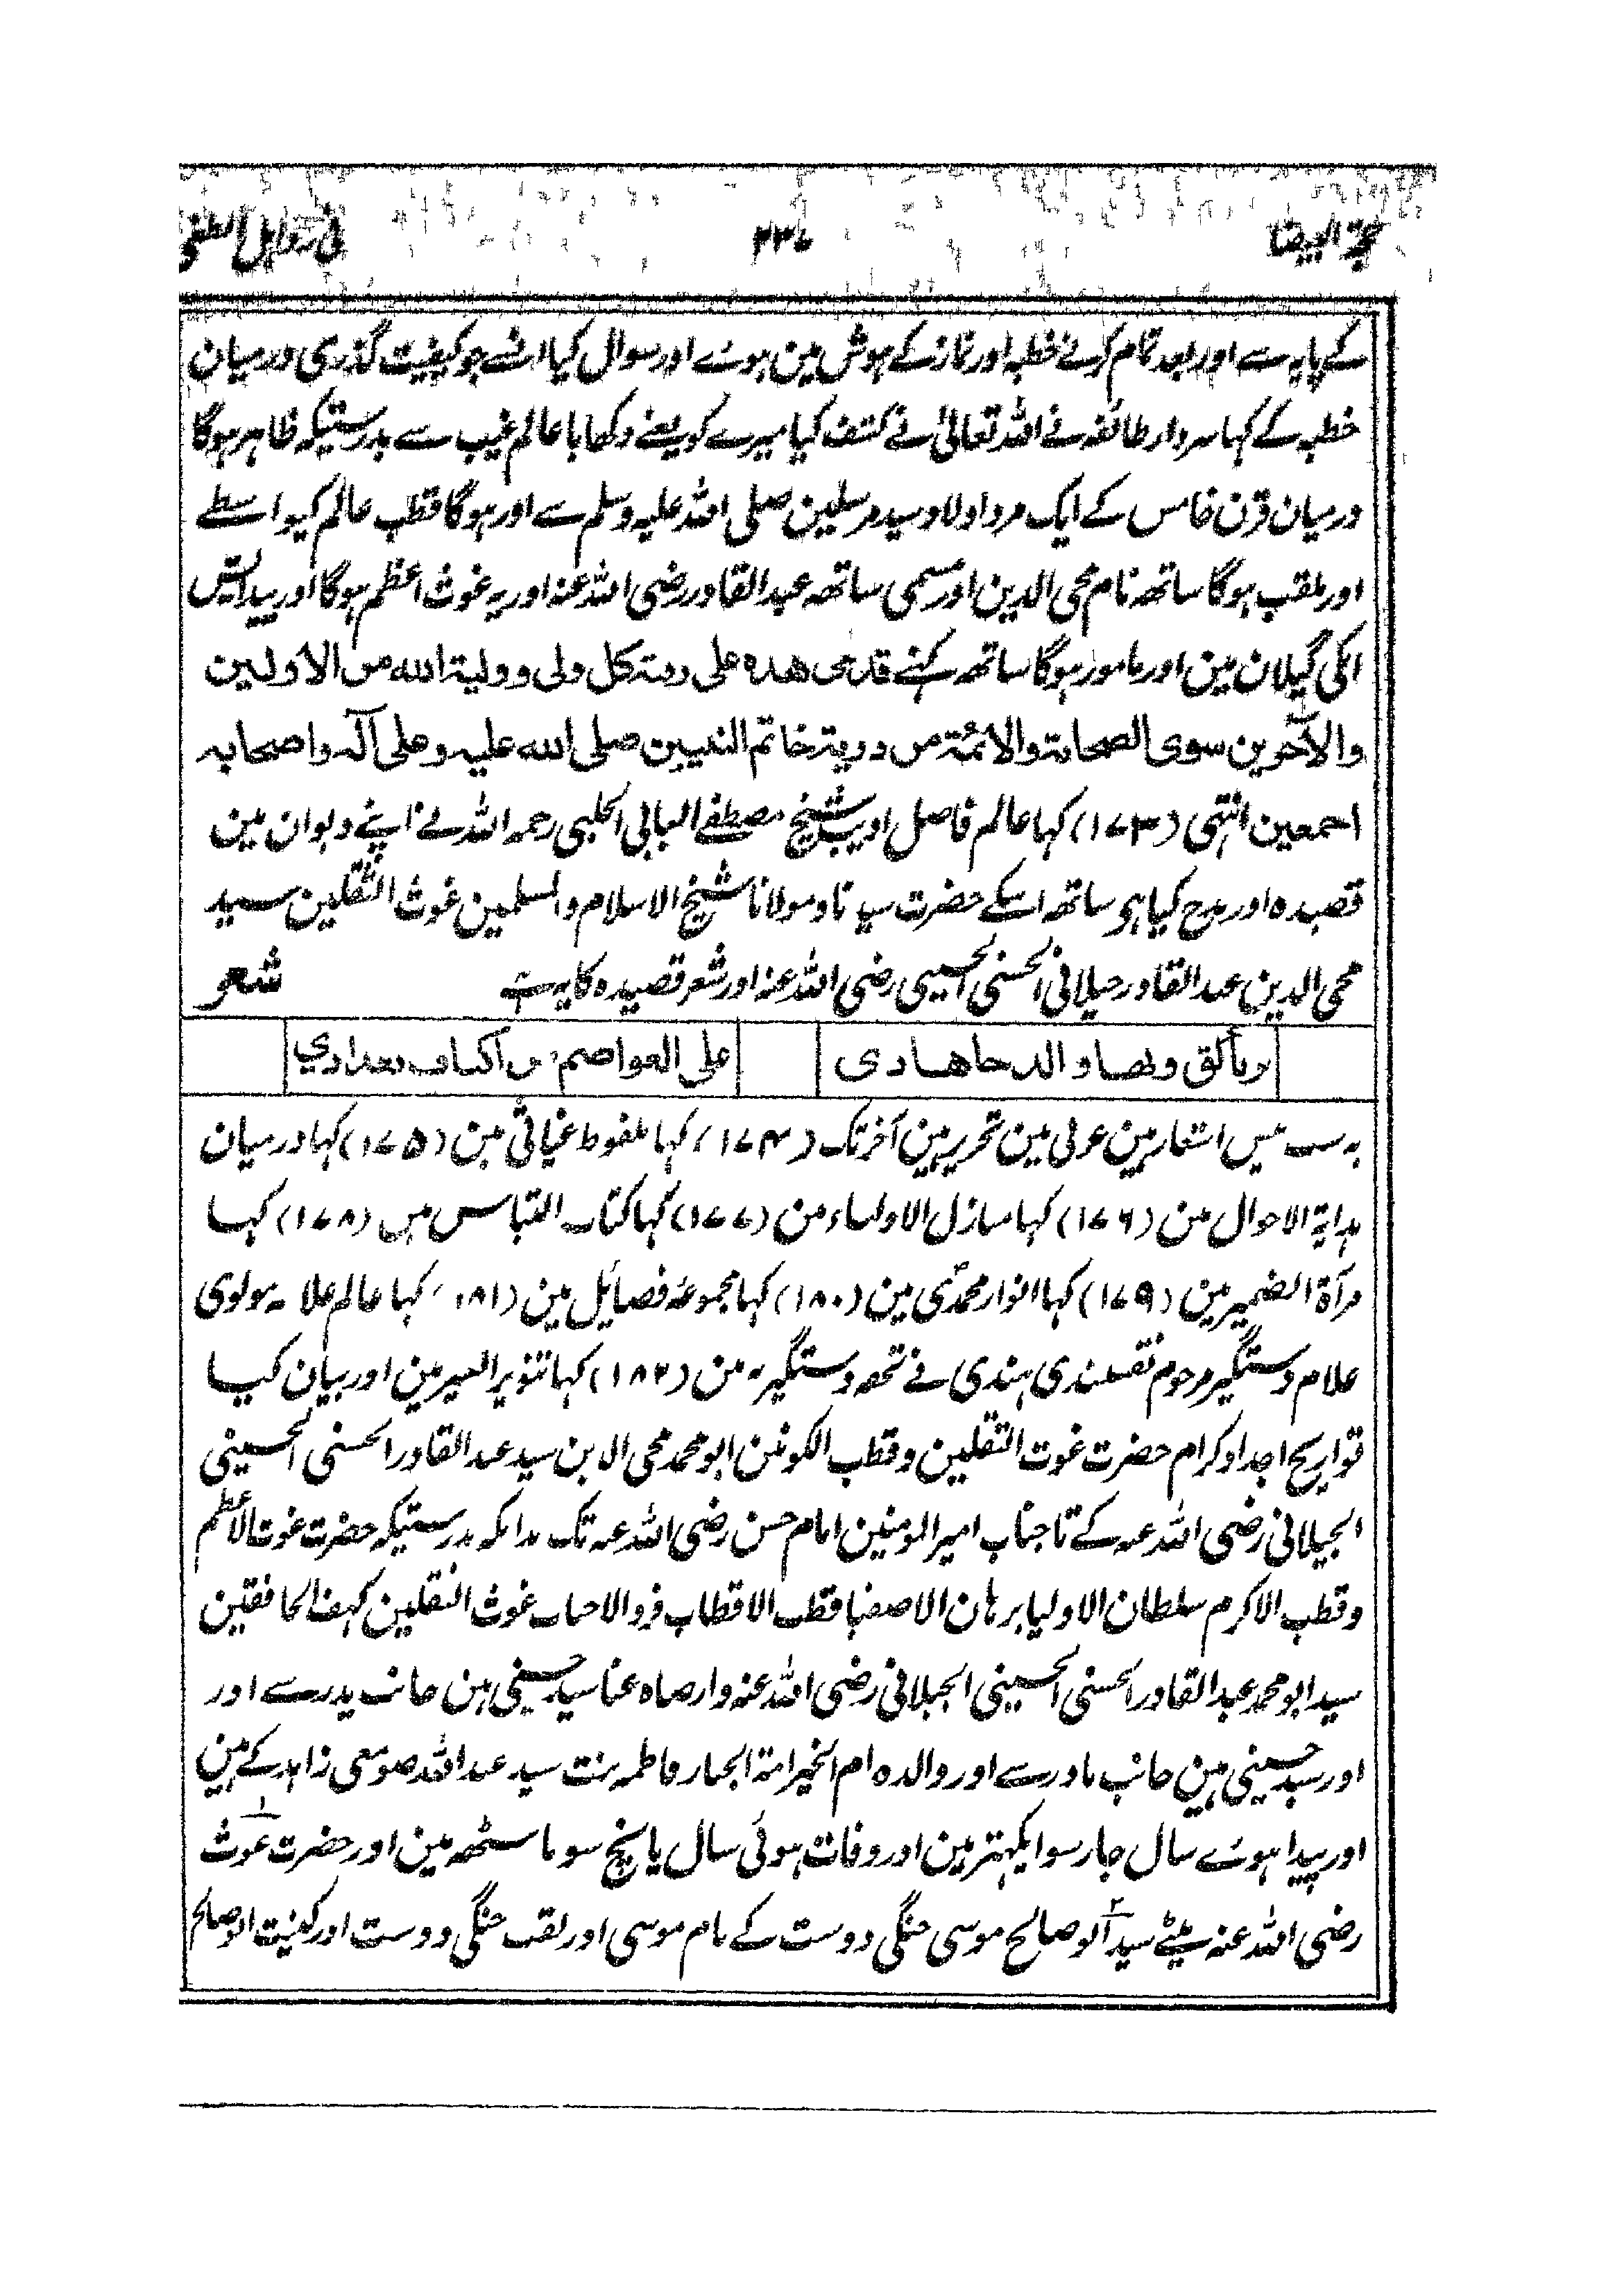 حجۃ البیضا
کے پایہ سے اور بعد تمام کرنے خطبہ اور نماز کے ہوش مین ہوے اور سوال کیا انسے جو کیفیت گذری درمیان
خطبہ کے کہا سردار طائفہ نے اللہ تعالیٰ نے کشف کیا میرے کو یعنے دکھایا عالم غیب سے بدرستیکہ ظاہر ہوگا
درمیان قرن خامس کے ایک مرد اولاد سید مرسلین صلی اللہ علیہ وسلم سے اور ہوگا قطب عالم کیواسطے
اور ملقب ہوگا ساتھہ نام محی الدین اور مسمی ساتھہ عبدالقادر رضی اللہ عنہ اور یہ غوث اعظم ہوگا اور پیدایش
انکی گیلان مین اور مامور ہوگا ساتھہ کہنے قدمی هذه علی رقبة كل ولی وولیة الله من الاولین
والآخرین سوی الصحابة والائمة من ذریة خاتم النبیین صلی الله علیه وعلی آله واصحابه
اجمعین انتہی (۱۷۳) کہا عالم فاضل ادیب شیخ مصطفے البابی الحلبی رحمہ اللہ نے اپنے دیوان مین
قصیدہ اور مدح کیا ہو ساتھہ اسکے حضرت سیدنا ومولانا شیخ الاسلام والمسلمین غوث الثقلین سید
محی الدین عبدالقادر جیلانی الحسنی الحسینی رضی اللہ عنہ اور شعر قصیدہ کا یہ ہے شعر
علی العواصم من اکناف بغدادی
یہ سب بیس اشعار ہین عربی مین تحریر ہین آخر تک (۱۷۴) کہا ملفوظ غیاثی مین (۱۷۵) کہا درمیان
ہدایۃ الاحوال مین (۱۷۶) کہا منازل الاولیاء مین (۱۷۷) کہا کتاب التباس مین (۱۷۸) کہا
مرآۃ الضمیر مین (۱۷۹) کہا انوار محمدی مین (۱۸۰) کہا مجموعہ فضائل مین (۱۸۱) کہا عالم علامہ مولوی
غلام دستگیر مرحوم نقشبندی ہندی نے تحفہ دستگیریہ مین (۱۸۲) کہا تنویر المنیر مین اور بیان کیا
تواریخ اجداد کرام حضرت غوث الثقلین وقطب الکونین ابو محمد محی الدین سید عبدالقادر الحسنی الحسینی
الجیلانی رضی اللہ عنہ کے تا جناب امیر المومنین امام حسن رضی اللہ عنہ تک بدانکہ بدرستیکہ حضرت غوث الاعظم
وقطب الاکرم سلطان الاولیا برہان الاصفیا قطب الاقطاب فرد الاحباب غوث الثقلین کہف الخافقین
سید ابو محمد عبدالقادر الحسنی الحسینی الجیلانی رضی اللہ عنہ وارضاہ عنا سید حسنی ہین جانب پدر سے اور
اور سید حسینی ہین جانب مادر سے اور والدہ ام الخیر امۃ الجبار فاطمہ بنت سید عبداللہ صومعی زاہد کے ہین
اور پیدا ہوے سال چار سو اکہتر مین اور وفات ہوئی سال پانچ سو باسٹھہ مین اور حضرت غوث
رضی اللہ عنہ بیٹے سید ابو صالح موسی جنگی دوست کے نام موسی اور لقب جنگی دوست اور کنیت ابو صالح